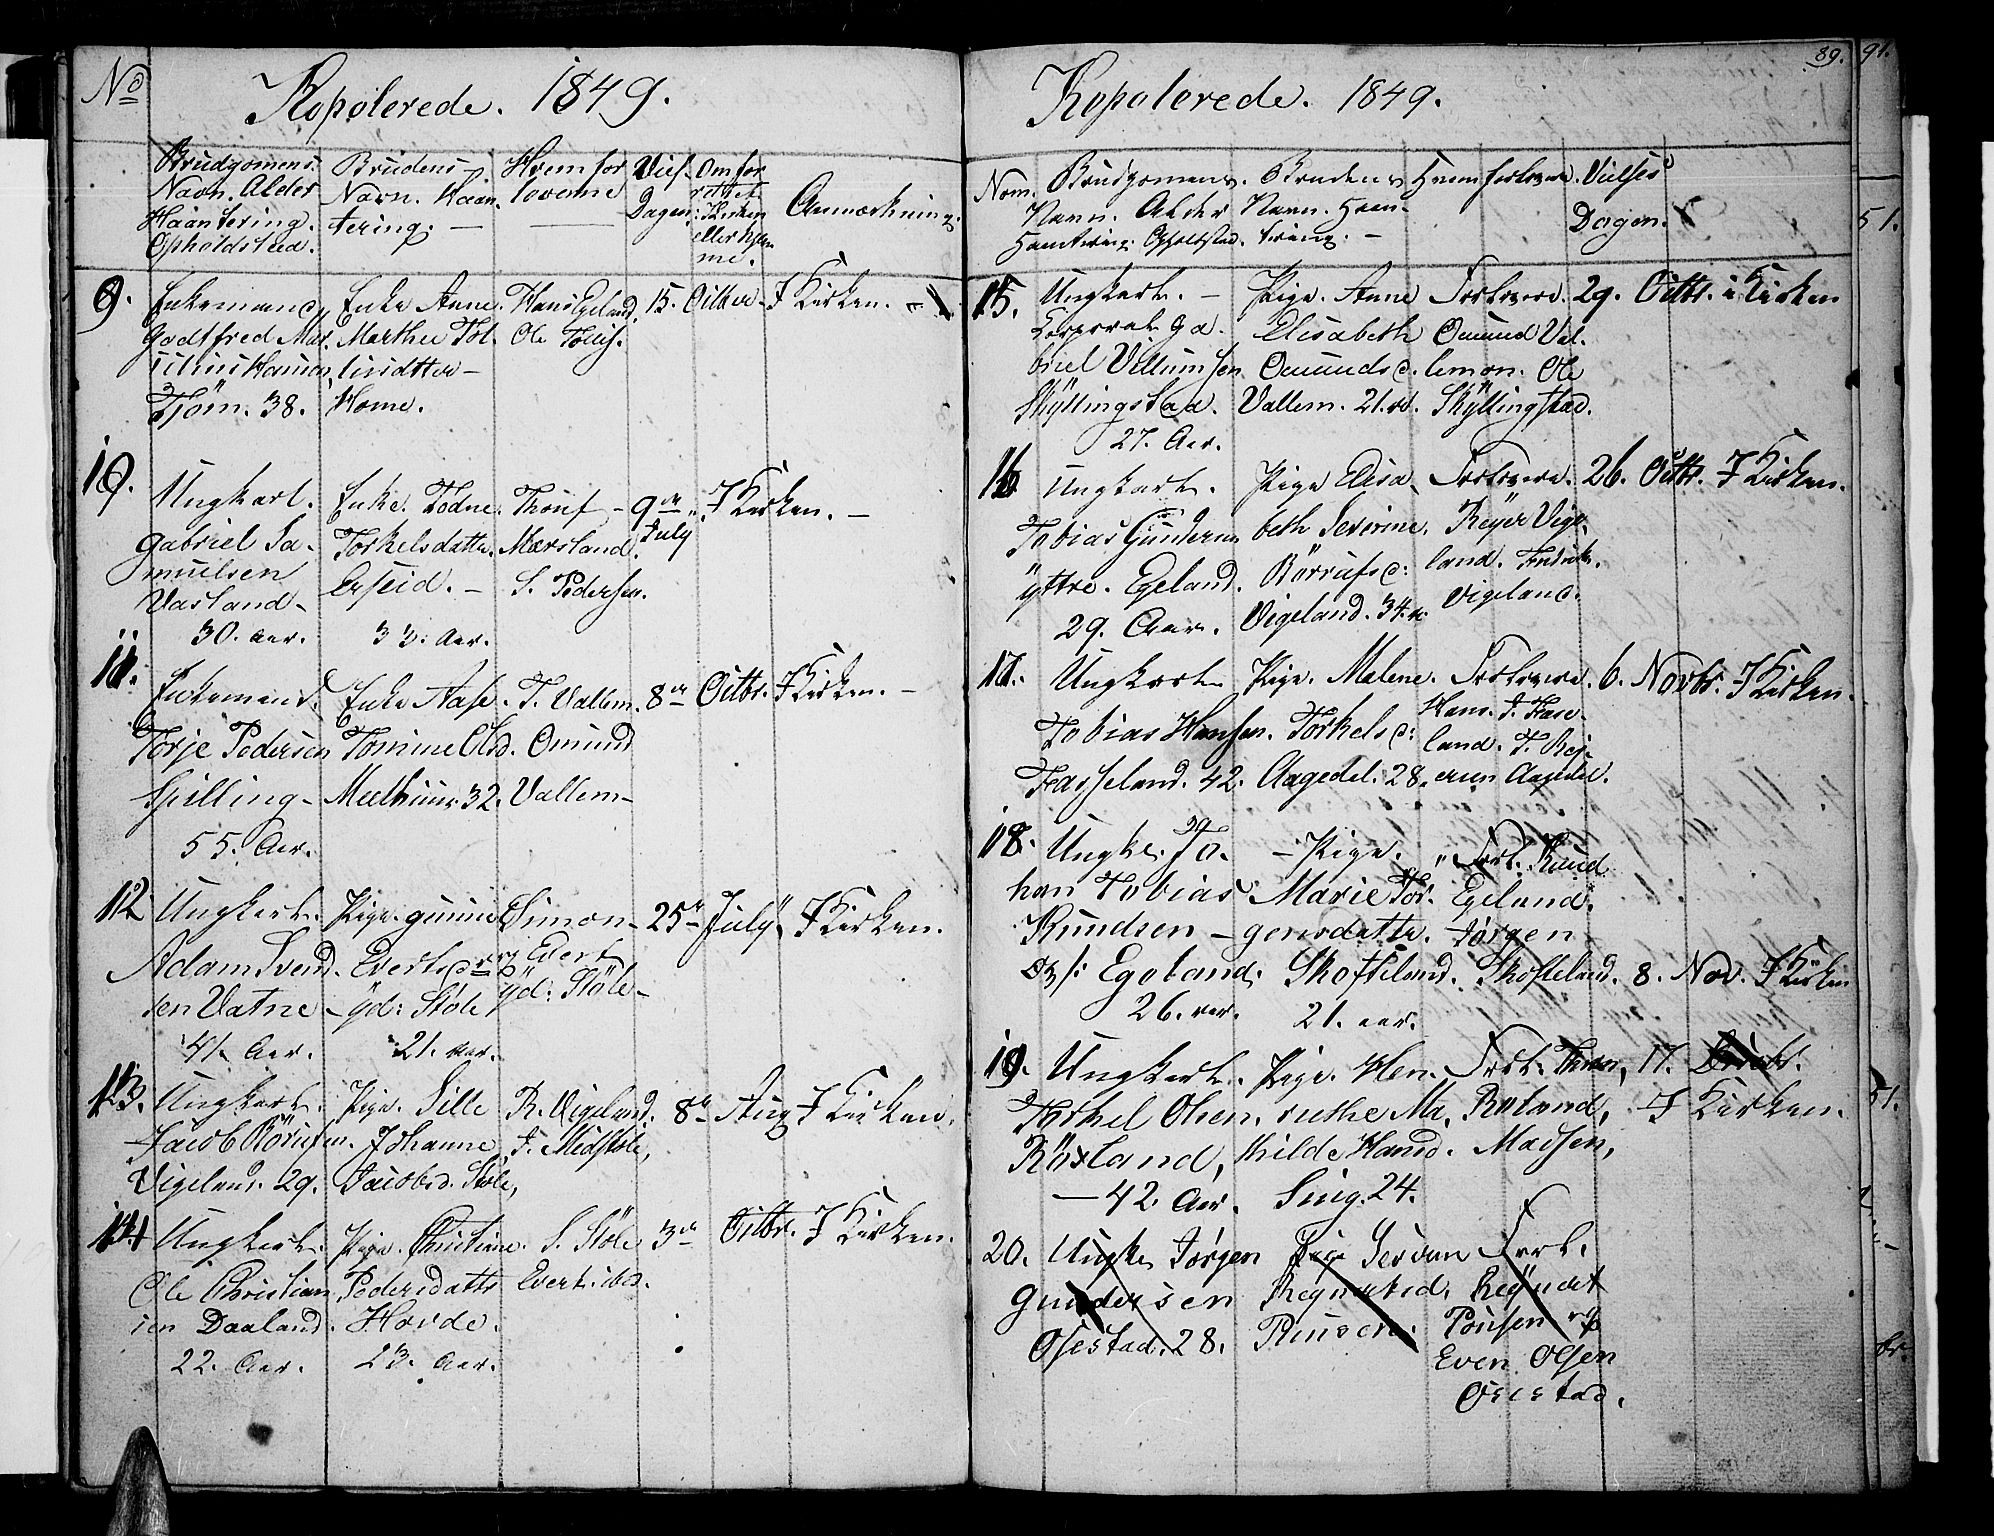 No
Kopolerede. 1849.
Brudgomens Navn. Alder Haantering. Opholdsted.
Brudens Navn. Haantering. —
Hvem for loverne
Viel. Dagen:
Om for rettet i Kirken eller Hjemme.
Anmærkning.
9. Enkemand
Godtfred
Tjöm. 38.
Enke Anne
Marthee
Home.
Hans Egeland,
Ole
15. Octber
I Kirken.
10. Ungkarl.
Gabriel Sa-
muelsen
Vasland-
30. Aar.
Enke. Todne.
Torkelsdatter.
Erseid. -
Mørsland.
S. Pedersen.
9de July
I Kirken. —
11. Enkemand.
Torje Pedersen
Spilling-
55. Aar.
Enke Aase.
Tomine Olsd.
32.
T. Vallem.
Omund
Vallem-
8de Octbr.
I Kirken. -
12. Ungkarl.
Adam Svend-
sen Vatne-
41. Aar.
Pige. Gunild
Evertsd.
yd: Støle
21. aar.
Simon-
Evert
yd: Støle-
25de July
I Kirken.
13. Ungkarl.
Jacob Börufsen.
Vigeland. 29.
Pige. Sille
Johanne,
Jacobsd. Støle,
R. Vigeland.
J. Midstøle,
8de Aug
I Kirken.
14 Ungkarl.
Ole Christian
sen Daaland.
22. Aar.
Pige. Christiane.
Pedersdatter
Hovde.
23. Aar.
S. Støle
Evert. ibd.
3de Octbr.
I Kirken.
89.
Kopolerede. 1849.
Nom.
Brudgomens. Navn. Alder Haantering: Opholdsted.
Brudens Navn. Haan- tering: -
Hvem forlovere.
Vielses Dagen.
15. Ungkarl. -
Korporal Ga-
briel Villumsen
Skÿllingstad.
27. Aar.
Pige. Anne
Elisabeth
Omundsd.
Vallem. 21.
Forlovere.
Omund Val-
lemon. Ole
Skÿllingstad.
29. Octbr. i Kirken
16 Ungkarl.
Tobias Gundersen
ÿttre. Egeland.
29. Aar.
Pige Elisa-
beth Severine.
Börrufsd:
Vigeland. 34.
Forlovere.
Reÿer Vige-
land. Fredrik.
Vigeland.
26. Octbr. I Kirken.
17. Ungkarl
Tobias Hansen.
Fasseland. 42.
Pige. Malene.
Torkelsd:
Aagedal. 28.
Forlovere.
Hans. T. Fase-
land. T. Rej-
ersen Aagedal.
6. Novbr. I Kirken.
18. Ungk. Jo-
han Tobias
Knudsen -
Egeland.
26. aar.
- Pige.
Marie Tor-
gersdatter.
Skofteland.
21. aar.
Forl. Knud
Egeland.
Jørgen
Skofteland.
8. Nov. I Kirken
19. Ungkarl.
Torkel Olsen.
Röisland,
— 42. Aar.
Pige. Hen-
riethe Ma-
thilde Hansd.
24.
Forl.
Røland,
Madsen,
17.
I Kirken.
20. Ungk. Jørgen
Gundersen
Osestad. 28.
Pige
Forl.
Even Olsen
Osestad.
91.
51.
51.
br.